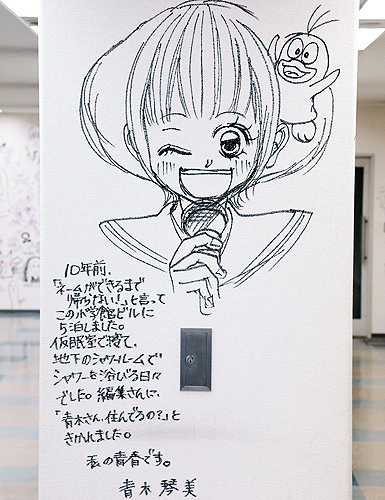 10年前、
「ネームができるまで
帰らない！」と言って
この小学館ビルに
5泊しました。
仮眠室で寝て、
地下のシャワールームで
シャワーを浴びる日々
でした。編集さんに、
「青木さん、住んでるの？」と
きかれました。
私の青春です。
青木琴美